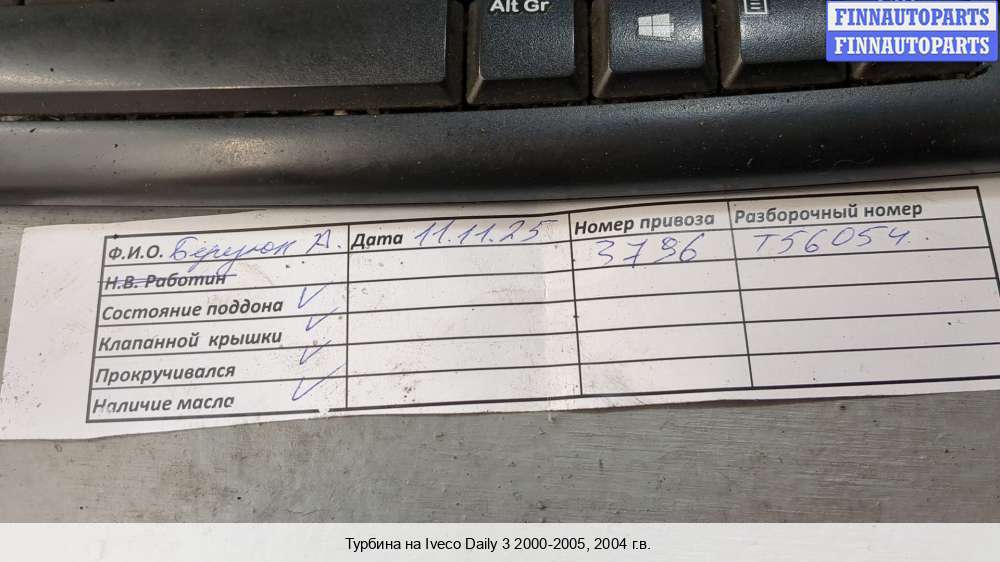 Alt Gr
FINNAUTOPARTS
FINNAUTOPARTS
Ф.И.О. А. Дата 11.11.25 Номер привоза 3796 Разборочный номер Т56054
Н.В. Работин
Состояние поддона ✓
Клапанной крышки ✓
Прокручивался ✓
Наличие масла ✓
Турбина на Iveco Daily 3 2000-2005, 2004 г.в.